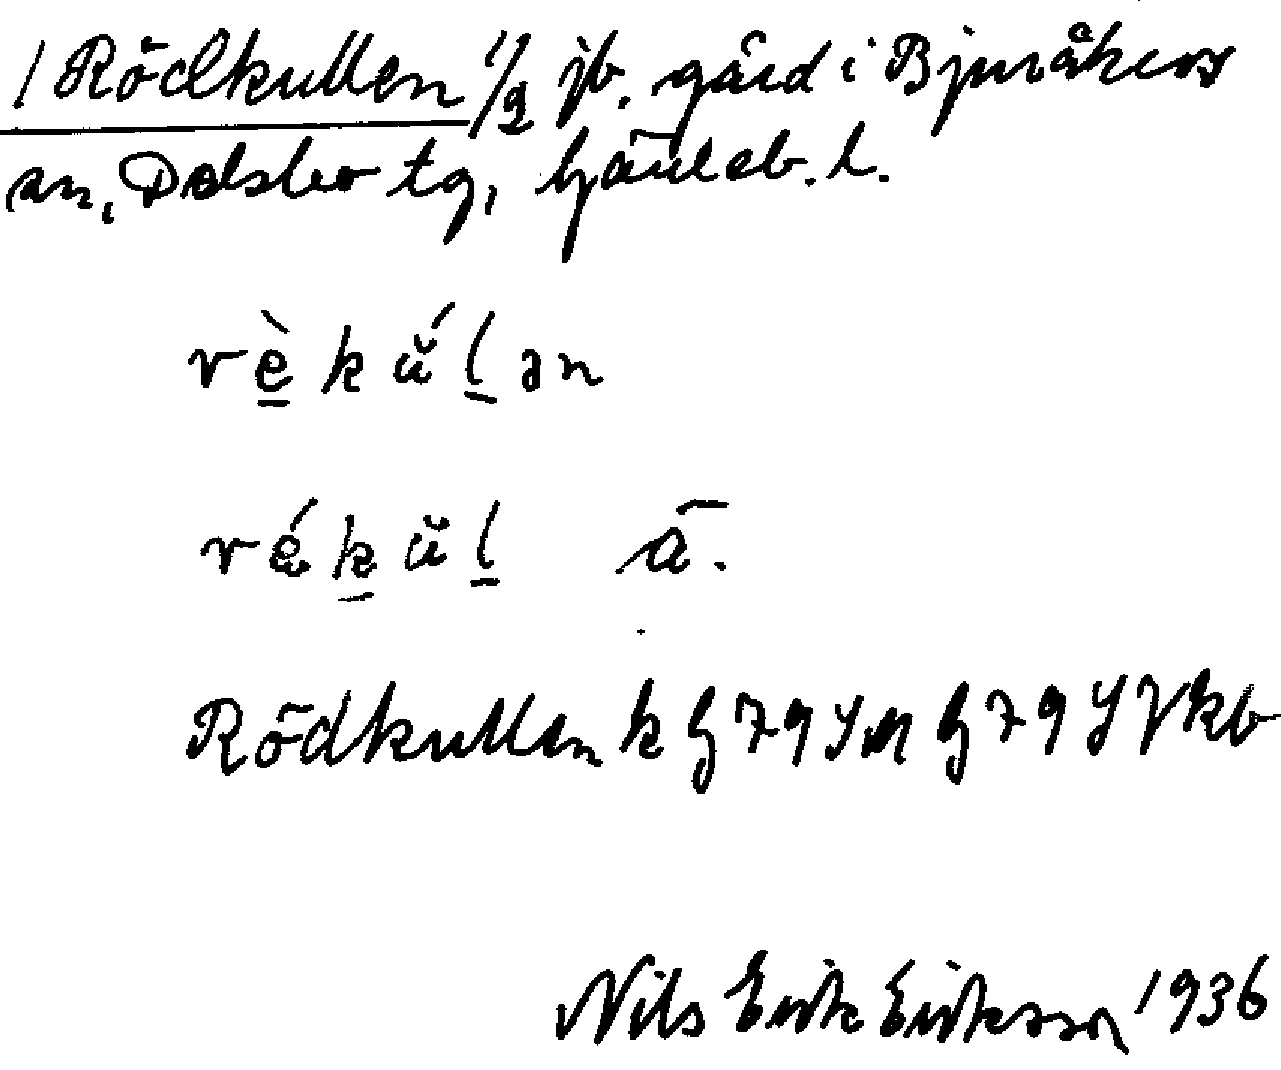 1 Rödkullen 1/2 jb. gård i Bjuråkers
sn, Delsbo tg, Gävleb. l.
rè̲kŭ́l̲ən
rék̲ŭl̲ ā.
Rödkullen k G 79 G 79
Nils Erik Eriksson 1936